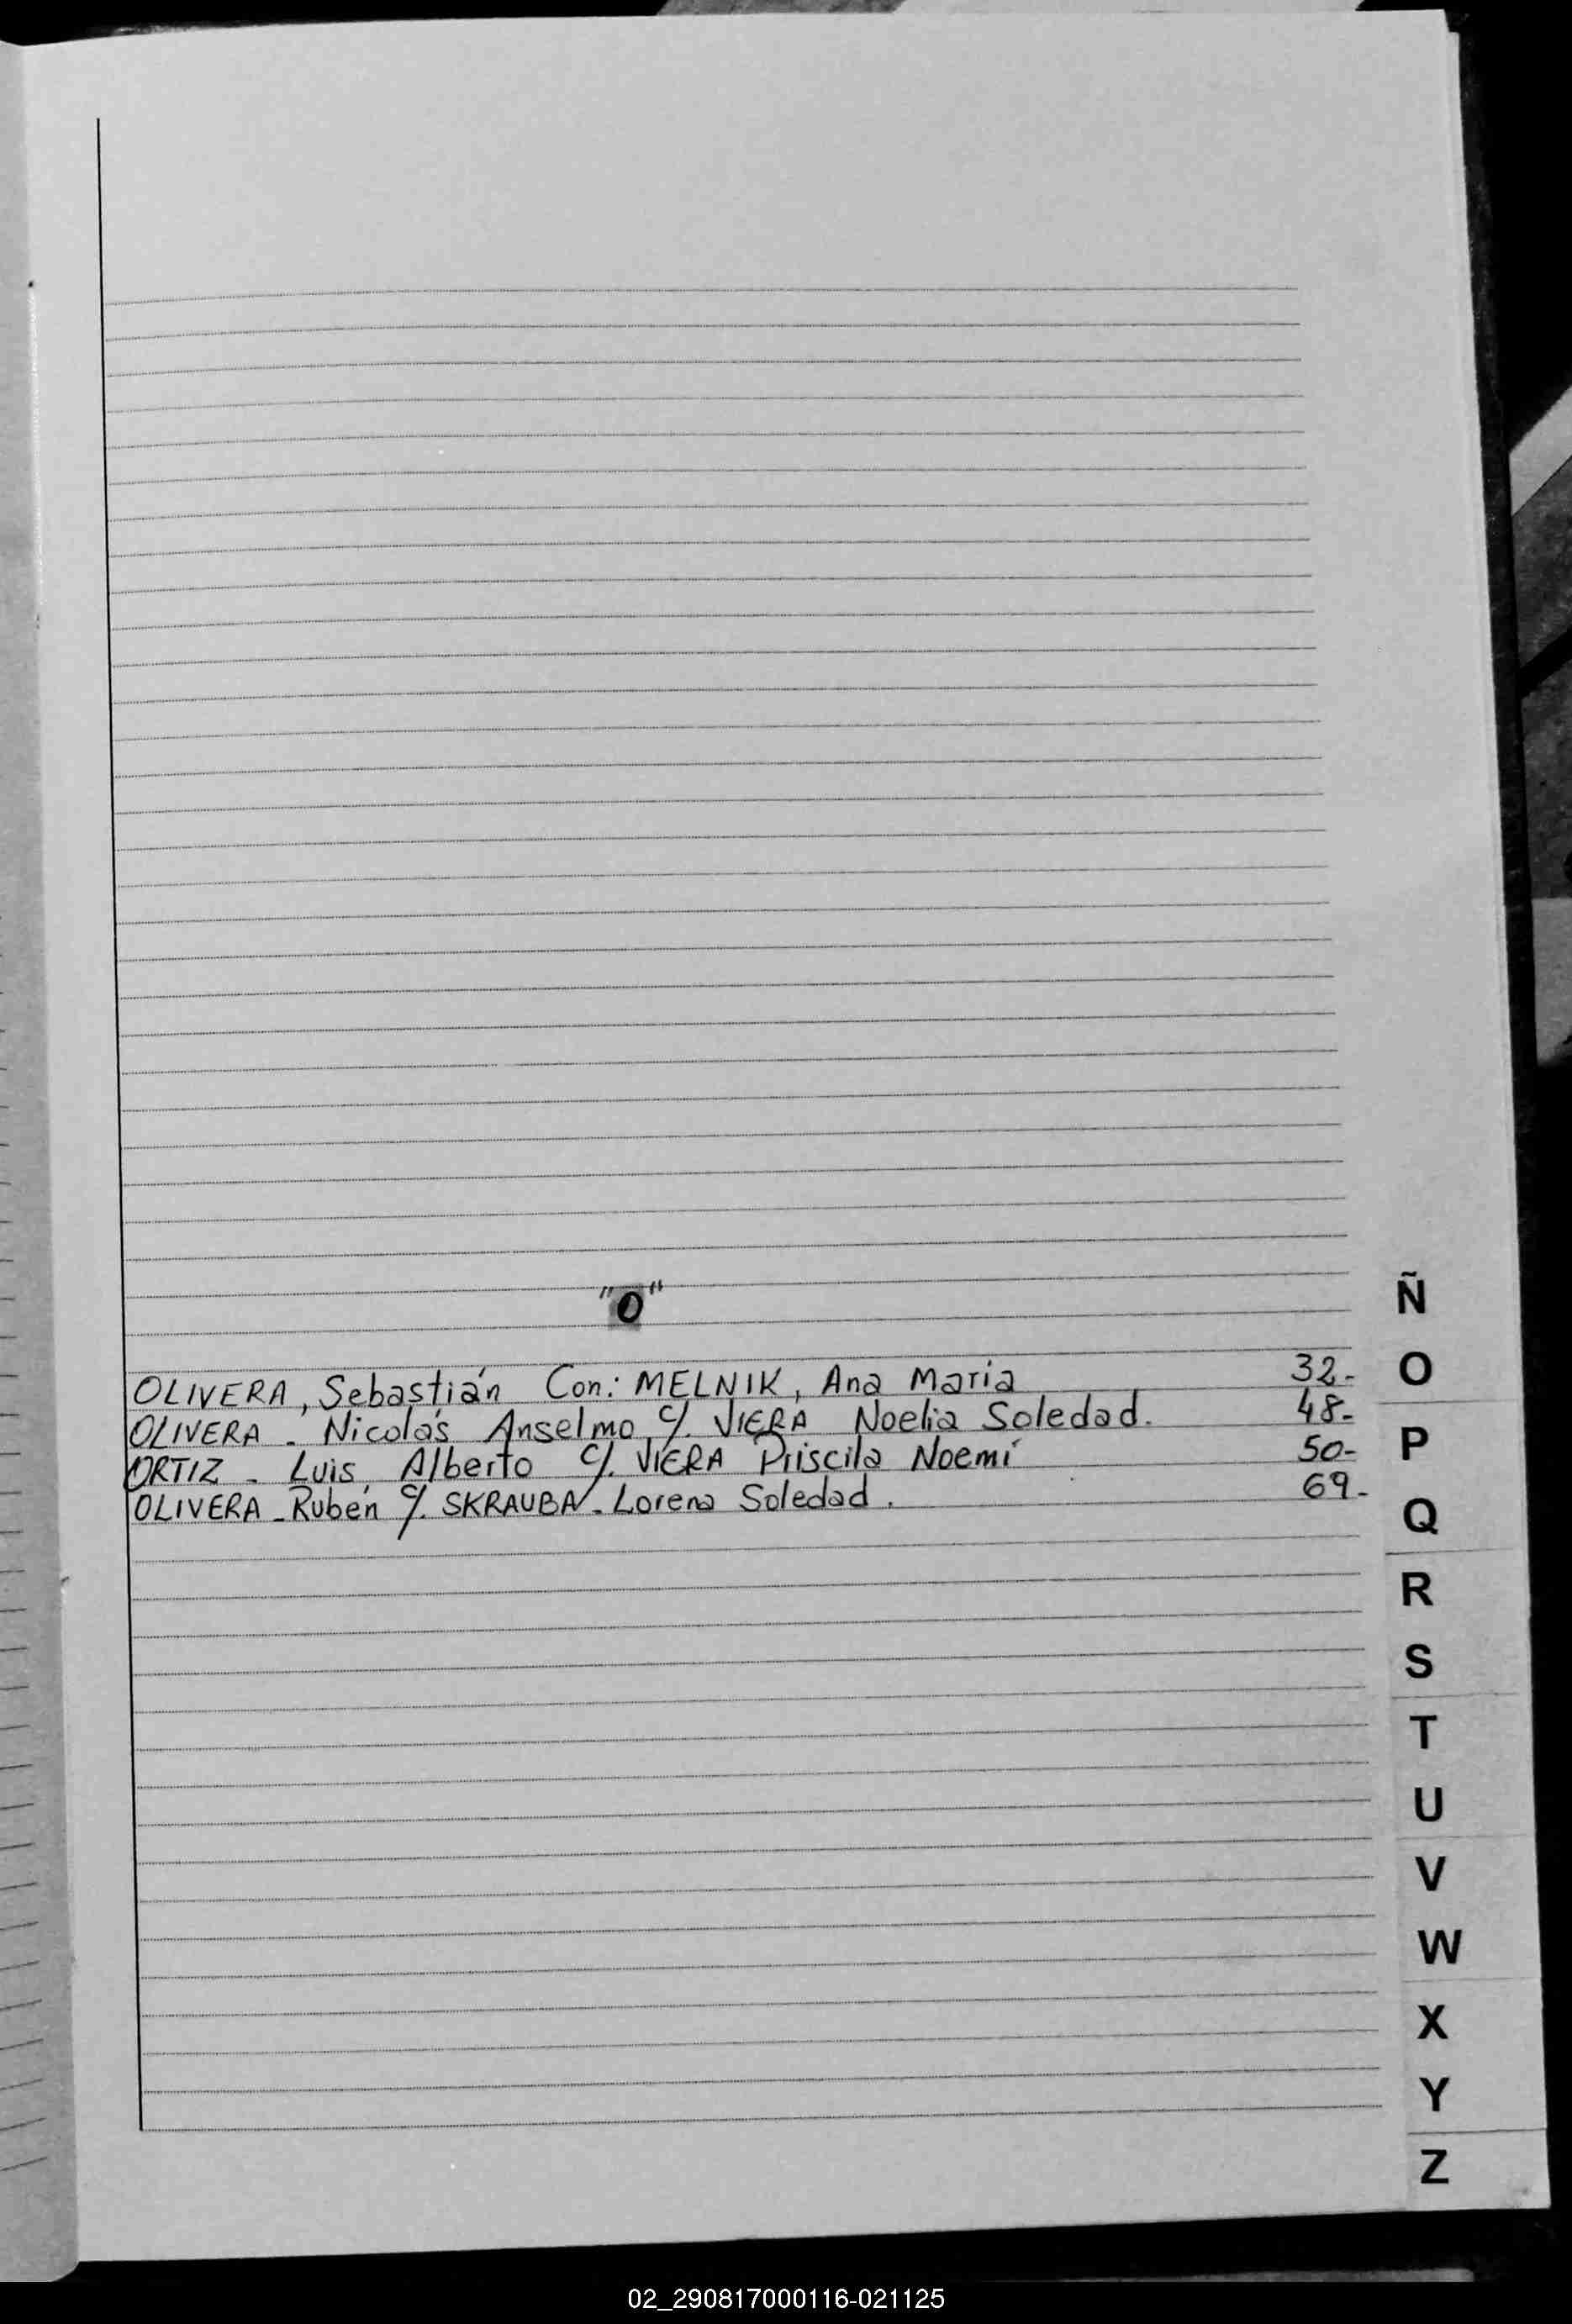 "O"
OLIVERA, Sebastián Con: MELNIK, Ana María 32-
OLIVERA - Nicolás Anselmo c/. VIERA Noelia Soledad. 48-
ORTIZ - Luis Alberto c/. VIERA Priscila Noemí 50-
OLIVERA - Rubén c/. SKRAUBA - Lorena Soledad. 69-
Ñ
O
P
Q
R
S
T
U
V
W
X
Y
Z
02_290817000116-021125